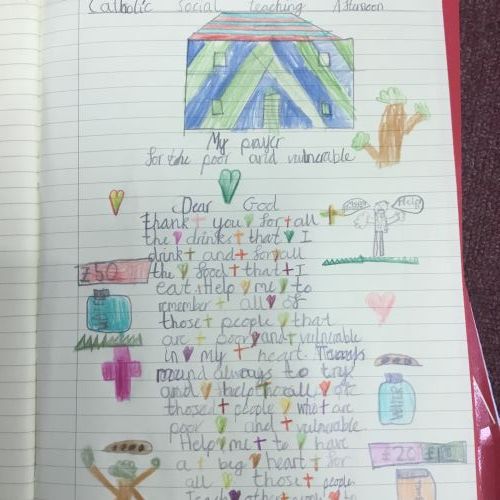 Catholic Social teaching Afternoon
My prayer
for the poor and vulnerable
Dear God
Help!
thank you for all
the drinks that I
drink and for all
£50
the food that I
eat. Help me to
WATER
remember all of
those people that
are poor and vulnerable
in my heart.
mund always to try
and help the all of
those people what are
WATER
poor and vulnerable.
Help me to have
£20 £10
a big heart for
all those people
Teach other people to